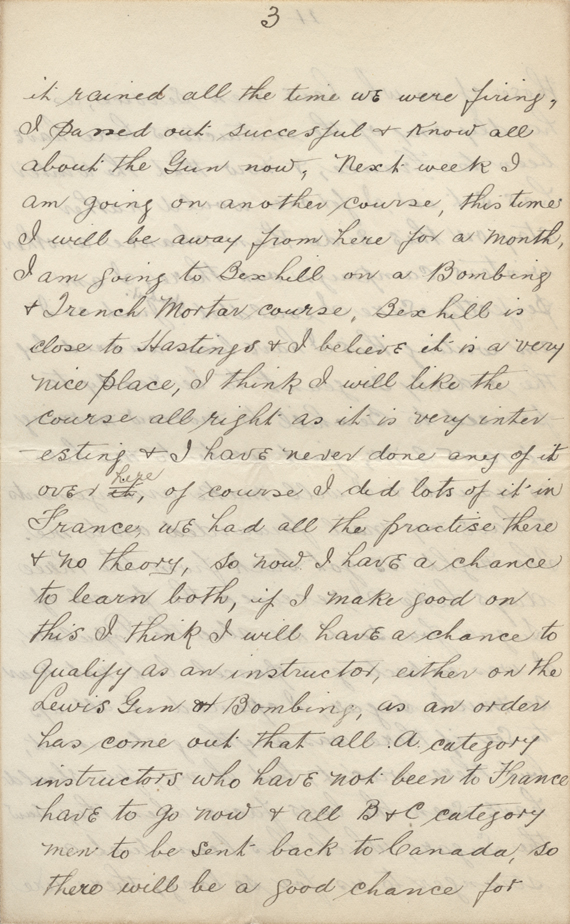 3
it rained all the time we were firing,
I passed out succesful & know all
about the Gun now, Next week I
am going on another course, this time
I will be away from here for a month,
I am going to Bexhill on a Bombing
& Trench Mortar course, Bexhill is
close to Hastings & I believe it is a very
nice place, I think I will like the
course all right as it is very inter
-esting & I have never done any of it
here
over it, of course I did lots of it in
France, we had all the practise there
& no theory, so now I have a chance
to learn both, if I make good on
this I think I will have a chance to
qualify as an instructor, either on the
Lewis Gun or Bombing, as an order
has come out that all A category
instructors who have not been to France
have to go now & all B & C category
men to be sent back to Canada, so
there will be a good chance for